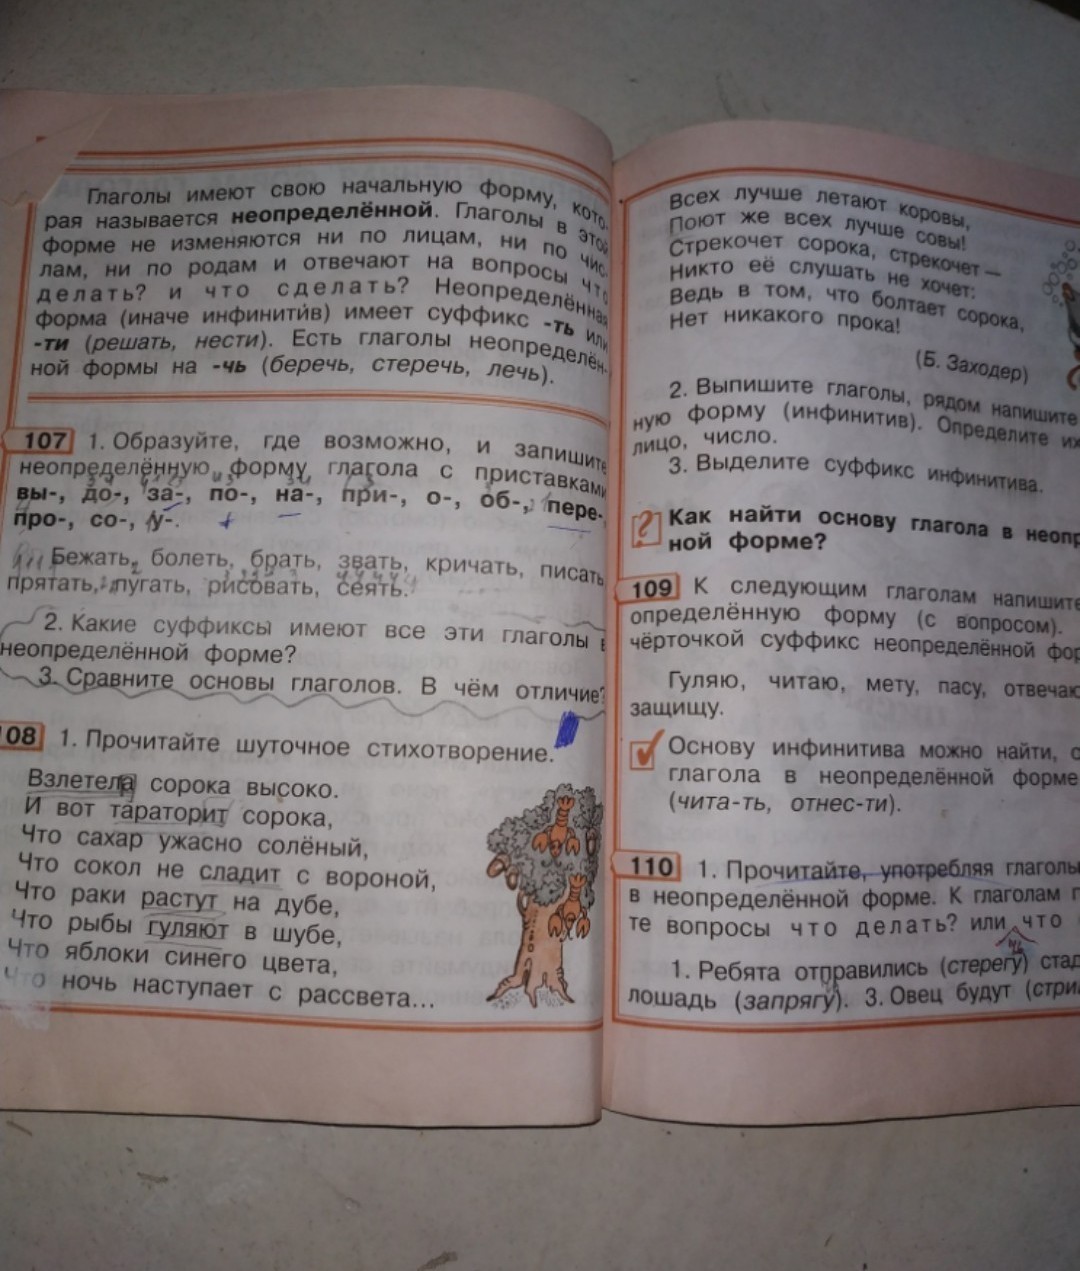 Глаголы имеют свою начальную форму, кото-
рая называется неопределённой. Глаголы в этой
форме не изменяются ни по лицам, ни по чис-
лам, ни по родам и отвечают на вопросы что
делать? и что сделать? Неопределённая
форма (иначе инфинити́в) имеет суффикс -ть или
-ти (решать, нести). Есть глаголы неопределён-
ной формы на -чь (беречь, стеречь, лечь).
107 1. Образуйте, где возможно, и запишите
неопределённую форму глагола с приставками
вы-, до-, за-, по-, на-, при-, о-, об-, пере-,
про-, со-, у-.
Бежать, болеть, брать, звать, кричать, писать,
прятать, пугать, рисовать, сеять.
2. Какие суффиксы имеют все эти глаголы в
неопределённой форме?
3. Сравните основы глаголов. В чём отличие?
108 1. Прочитайте шуточное стихотворение.
Взлетела сорока высоко.
И вот тараторит сорока,
Что сахар ужасно солёный,
Что сокол не сладит с вороной,
Что раки растут на дубе,
Что рыбы гуляют в шубе,
Что яблоки синего цвета,
Что ночь наступает с рассвета...
Всех лучше летают коровы,
Поют же всех лучше совы!
Стрекочет сорока, стрекочет —
Никто её слушать не хочет:
Ведь в том, что болтает сорока,
Нет никакого прока!
(Б. Заходер)
2. Выпишите глаголы, рядом напишите
ную форму (инфинитив). Определите их
лицо, число.
3. Выделите суффикс инфинитива.
? Как найти основу глагола в неопр
ной форме?
109 К следующим глаголам напишите
определённую форму (с вопросом).
чёрточкой суффикс неопределённой фор
Гуляю, читаю, мету, пасу, отвечаю
защищу.
Основу инфинитива можно найти, о
глагола в неопределённой форме
(чита-ть, отнес-ти).
110 1. Прочитайте, употребляя глаголы
в неопределённой форме. К глаголам п
те вопросы что делать? или что
1. Ребята отправились (стерегу) стад
лошадь (запрягу). 3. Овец будут (стри